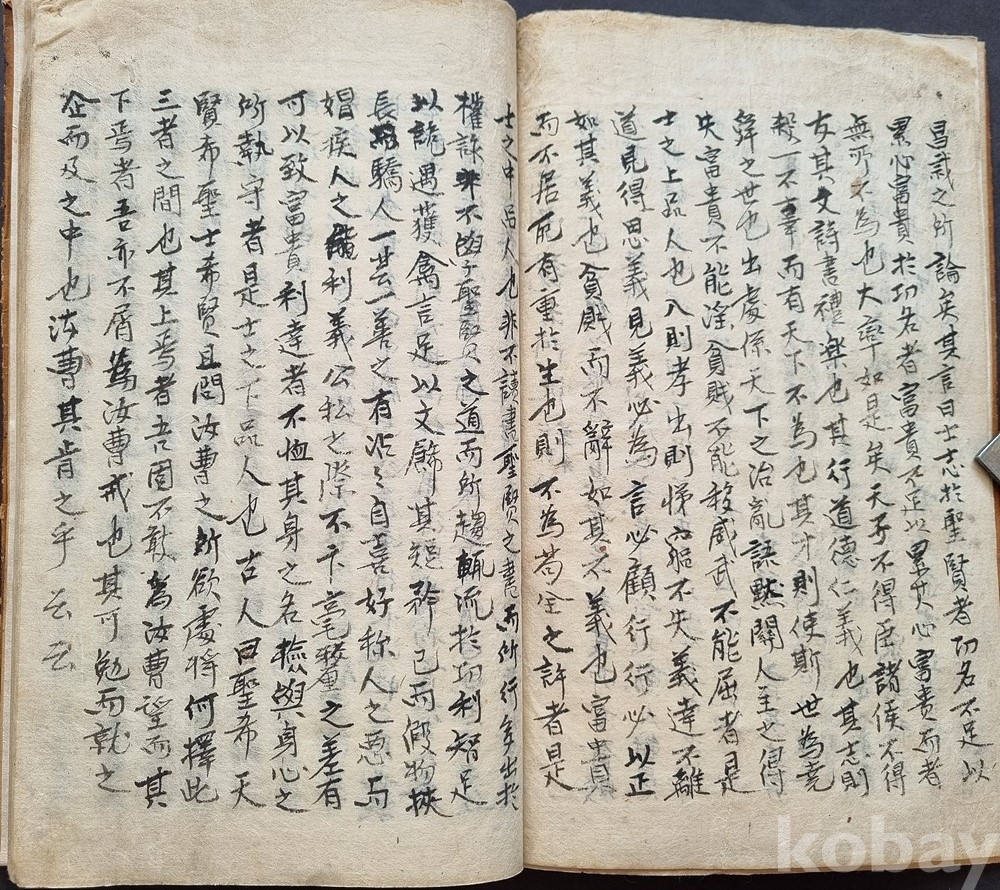 昌裁之所論矣其言曰士志於聖賢者功名不足以
累心富貴於功名者富貴不足以累其心富貴而者
無所不為也大率如是矣天子不得臣諸侯不得
友其文詩書禮楽也其行道德仁義也其志則
殺一不辜而有天下不為也其才則使斯世為堯
舜之世也出處係天下之治亂語黙關人主之得
失富貴不能淫貧賎不能移威武不能屈者是
士之上品人也入則孝出則悌窮不失義達不離
道見得思義見義必為言必顧行行必以正
如其義也貧賎而不辭如其不義也富貴
而不居死有重於生也則不為苟全之許者是
士之中品人也非不讀書聖賢之書而所行多出於
權謀非不學聖賢之道而所趨輒流於功利智足
以詭遇獲禽言足以文餙其短矜己而假物挾
長而驕人一芸一善之有沾沾自喜好称人之悪而
娼疾人之能利義公私之際不干毫釐之差有
可以致富貴利達者不恤其身之名檢與身心之
所執守者是士之下品人也古人曰聖希天
賢希聖士希賢且問汝曹之所欲處將何擇此
三者之間也其上焉者吾固不敢為汝曹望而其
下焉者吾亦不屑為汝曹戒也其可勉而就之
企而及之中也汝曹其肯之乎 云云
kobay